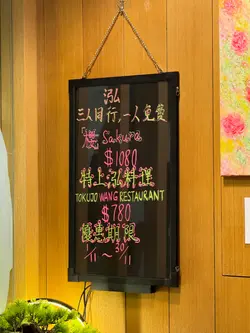 泓
三人同行,一人免費
燒 Sakura
$1080
特上泓料理
TOKUJO WANG RESTAURANT
$780
優惠期限
1/11 ~ 30/11